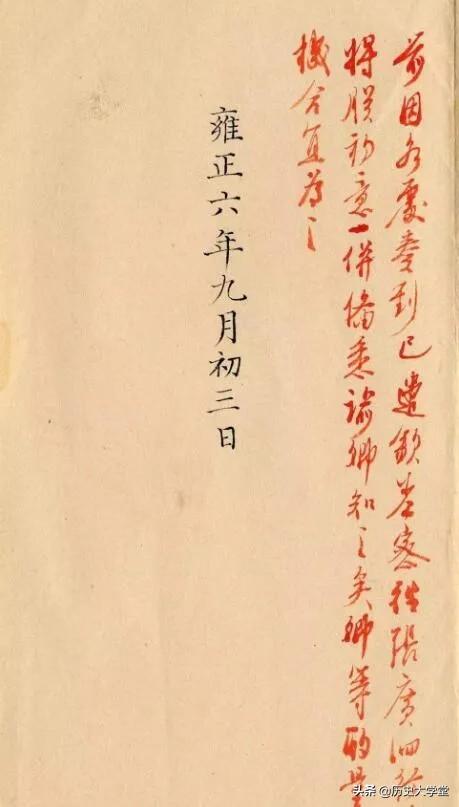 前因各處奏到已遣欽差密往張廣泗
將朕初意一併俻悉諭卿知之矣卿等酌量
機合宜為之
雍正六年九月初三日
头条 @历史大学堂